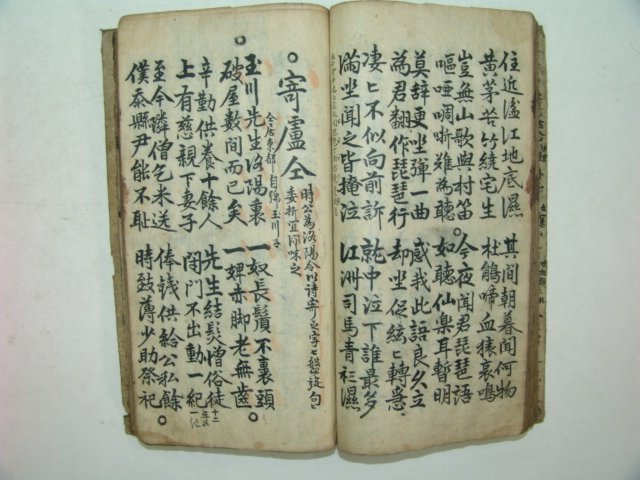 住近湓江地底濕
黃茅苦竹繞宅生
其間朝暮聞何物
杜鵑啼血猿哀鳴
豈無山歌與村笛
嘔唖啁哳難為聽
今夜聞君琵琶語
如聽仙樂耳暫明
莫辞更坐彈一曲
為君翻作琵琶行
感我此語良久立
却坐促絃〻轉急
凄〻不似向前訴
滿坐聞之皆掩泣
就中泣下誰最多
江洲司馬青衫濕
寄盧仝
時公為洛陽令以詩寄之字〻盤旋句〻
委折宜深味之
仝居東都自號玉川子
玉川先生洛陽裏
破屋數間而已矣
一奴長鬚不裹頭
一婢赤脚老無齒
辛勤供養十餘人
上有慈親下妻子
先生結髮憎俗徒
閉門不出動一紀
十二年為一紀
至今隣僧乞米送
僕忝縣尹能不耻
俸錢供給公私餘
時致薄少助祭祀